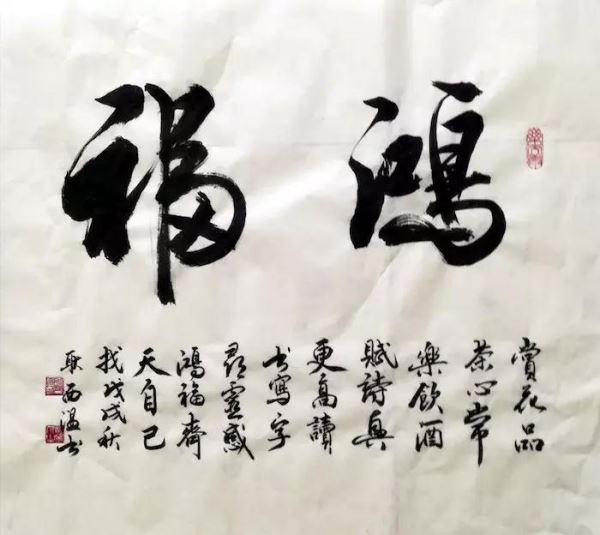 鴻福
賞花品
茶心常
樂飲酒
賦詩興
更高讀
书寫字
尋靈感
鴻福齊
天自己
找戊戌秋
耿西温书